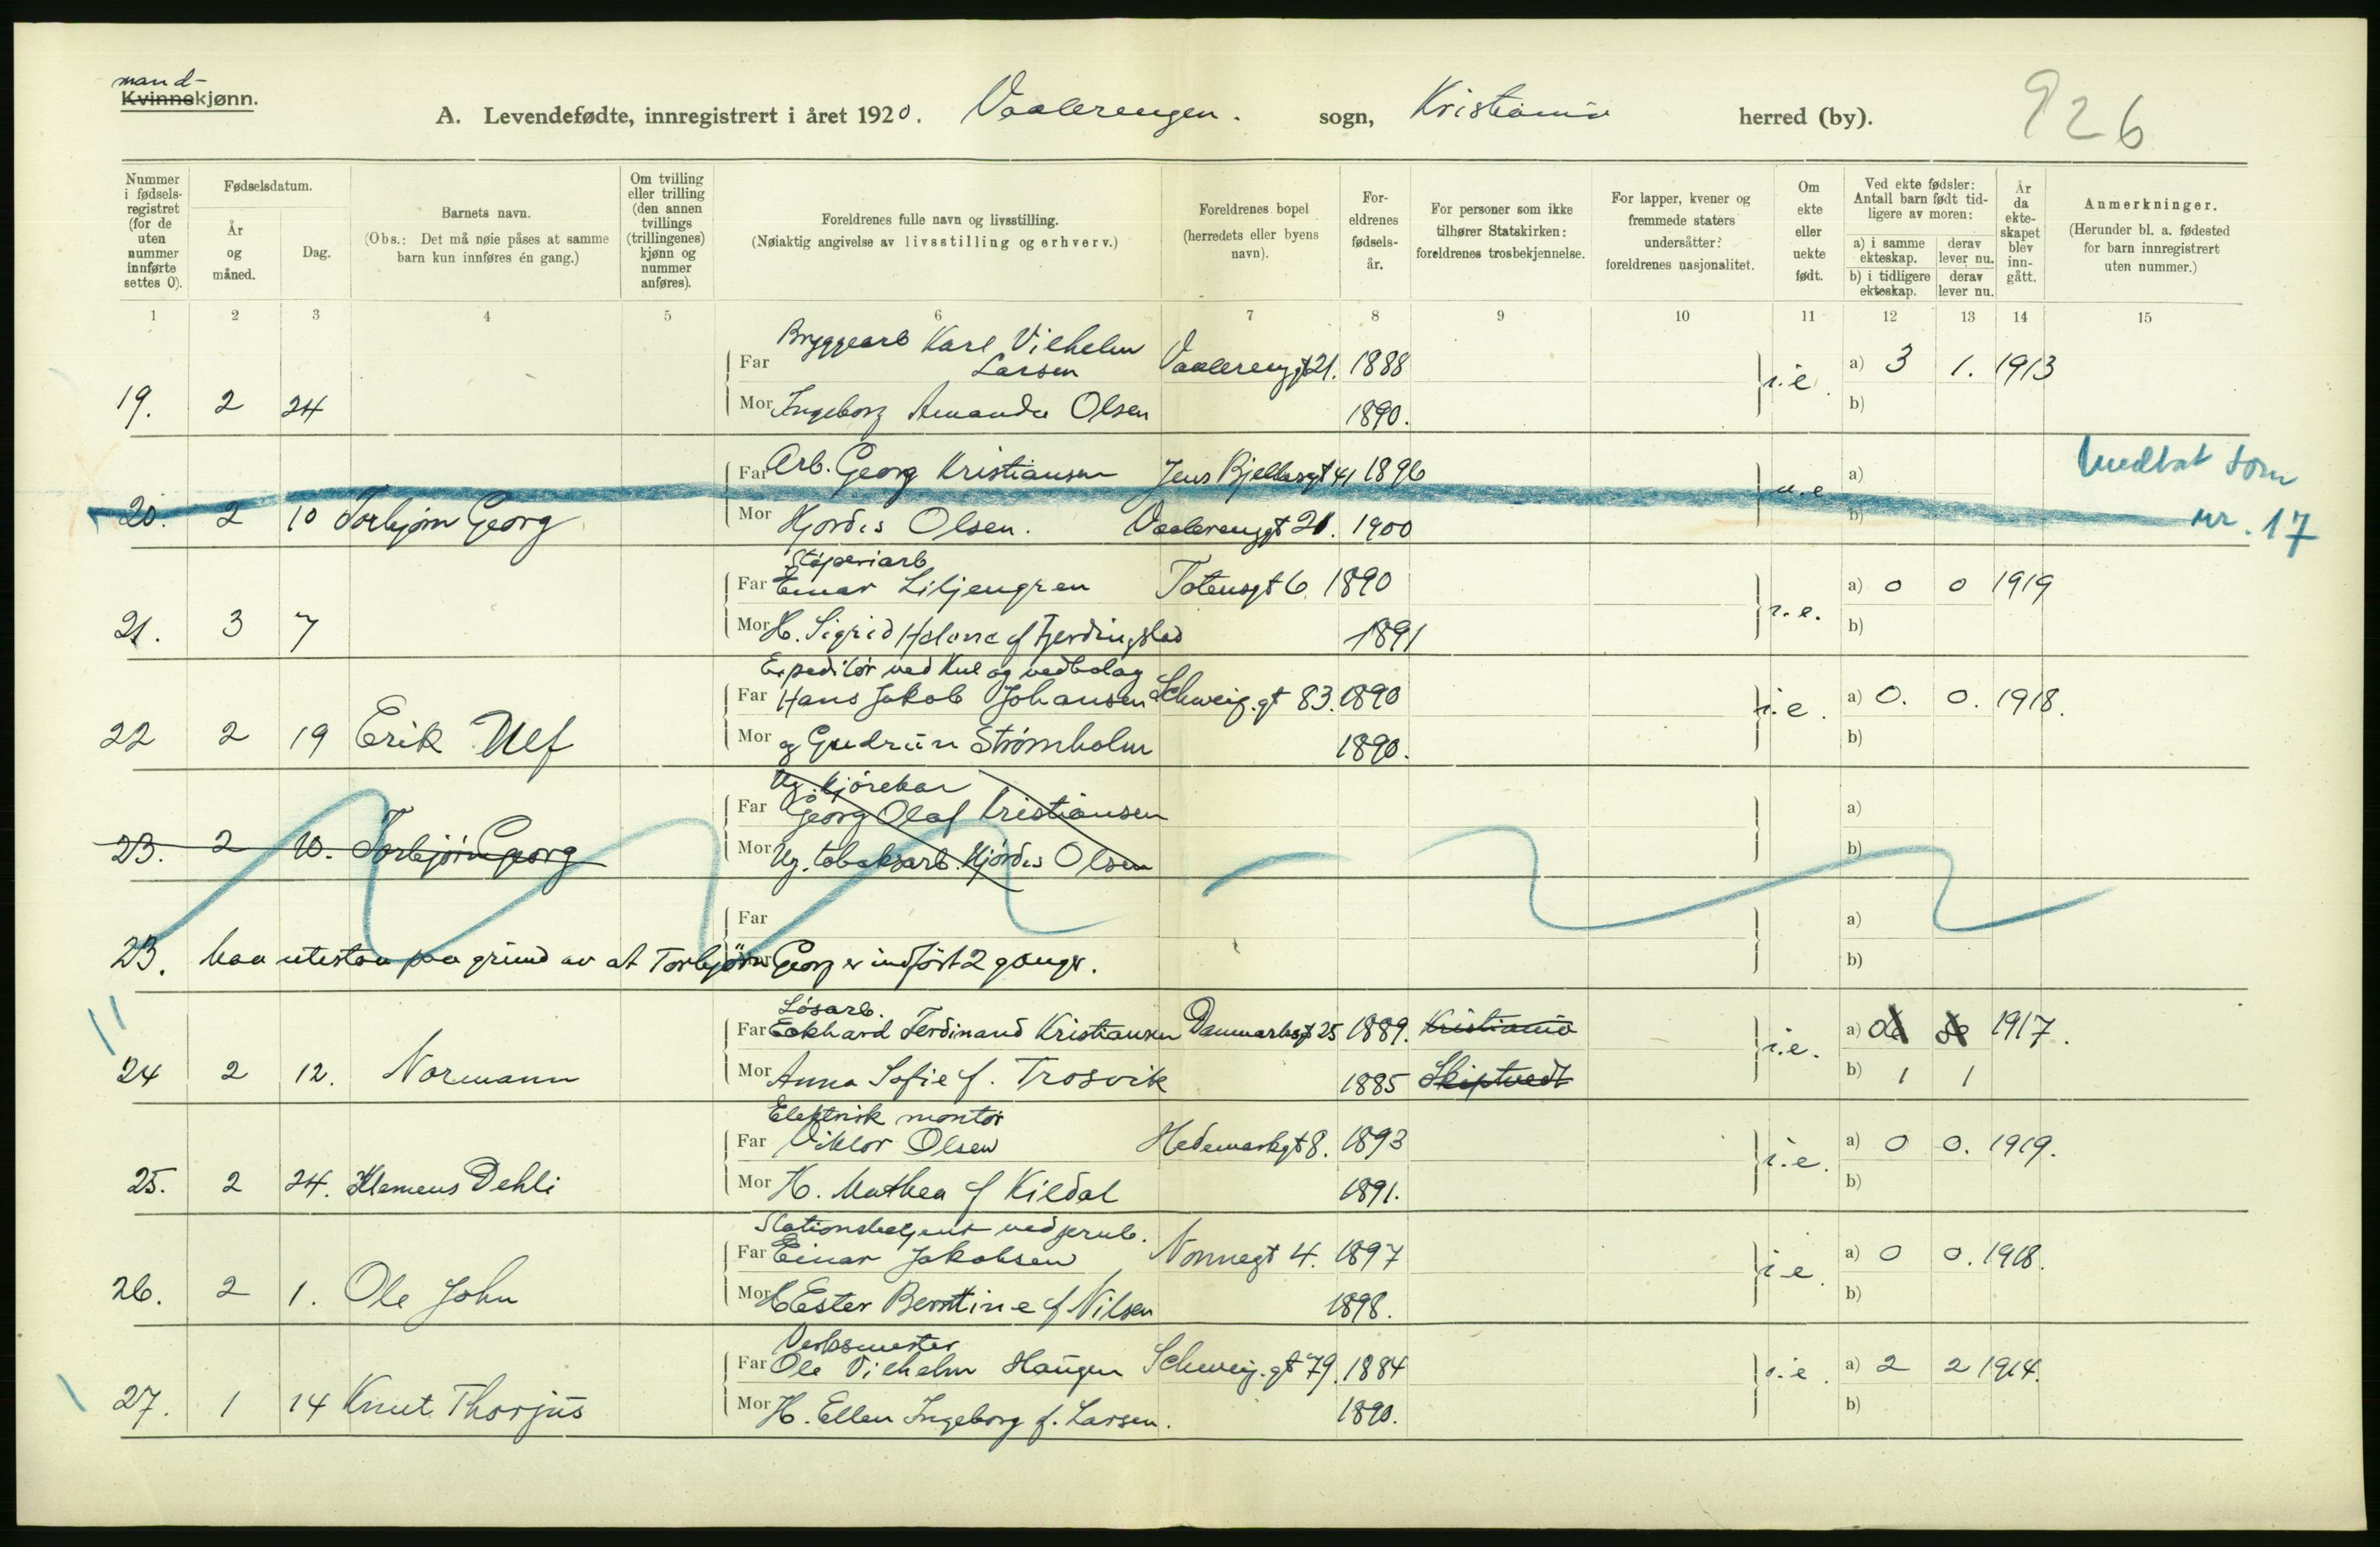 mand-
Kvinnekjønn.
A. Levendefødte, innregistrert i året 1920. Vaalerengen. sogn, Kristiania herred (by). 926
Nummer i fødselsregistret (for de uten nummer innførte settes 0).
Fødselsdatum.
År og måned.
Dag.
Barnets navn.
(Obs.: Det må nøie påses at samme barn kun innføres én gang.)
Om tvilling eller trilling (den annen tvillings (trillingenes) kjønn og nummer anføres).
Foreldrenes fulle navn og livsstilling.
(Nøiaktig angivelse av livsstilling og erhverv.)
Foreldrenes bopel (herredets eller byens navn).
Foreldrenes fødselsår.
For personer som ikke tilhører Statskirken: foreldrenes trosbekjennelse.
For lapper, kvener og fremmede staters undersåtter: foreldrenes nasjonalitet.
Om ekte eller uekte født.
Ved ekte fødsler: Antall barn født tidligere av moren:
a) i samme ekteskap. derav lever nu.
b) i tidligere ekteskap. derav lever nu.
År da ekteskapet blev inngått.
Anmerkninger.
(Herunder bl. a. fødested for barn innregistrert uten nummer.)
1 2 3 4 5 6 7 8 9 10 11 12 13 14 15
Bryggearb Karl Vilhelm
Far Larsen Vaalerenggt 21. 1888 i.e. a) 3 1. 1913
19. 2 24 Mor Ingeborg Amanda Olsen 1890. b)
Far Arb. Georg Kristiansen Jens Bjelkesgt 41 1896 u.e a) Medtat som
20. 2 10 Torbjørn Georg Mor Hjørdis Olsen. Vaalerenggt 21. 1900 b) nr. 17
Støperiarb
Far Einar Liljengren Totensgt 6. 1890 i.e. a) 0 0 1919
21. 3 7 Mor H. Sigrid Helene f Fjerdingstad 1891 b)
Expeditør ved Kul og vedbolag
Far Hans Jakob Johansen Schweig.gt 83. 1890 i.e. a) 0. 0. 1918.
22 2 19 Erik Ulf Mor og Gudrun Strømholm 1890. b)
Ug. kjørekar
Far Georg Olaf Kristiansen a)
23. 2 10. Torbjørn Georg Mor Ug. tobaksarb. Hjørdis Olsen b)
Far a)
23. Maa utestaa paa grund av at Torbjørn Georg er indført 2 ganger. b)
Løsarb.
Far Eckhard Ferdinand Kristiansen Danmarksgt 25 1889. Kristiania i.e. a) 1917.
24 2 12. Normann Mor Anna Sofie f. Trosvik 1885 Skiptvedt b) 1 1
Elektrisk montør
Far Viktor Olsen Hedemarksgt 8. 1893 i.e. a) 0 0. 1919.
25. 2 24. Klemens Dehli Mor H. Mathea f Kildal 1891. b)
Stationsbetjent ved jernb.
Far Einar Jakobsen Nonnegt 4. 1897 i.e. a) 0 0. 1918.
26. 2 1. Ole John Mor H Ester Berntine f Nilsen 1898. b)
Verksmester
Far Ole Vilhelm Haugen Schweig.gt 79. 1884 i.e. a) 2 2 1914.
27. 1 14 Knut Thorjus Mor H. Ellen Ingeborg f. Larsen. 1890. b)